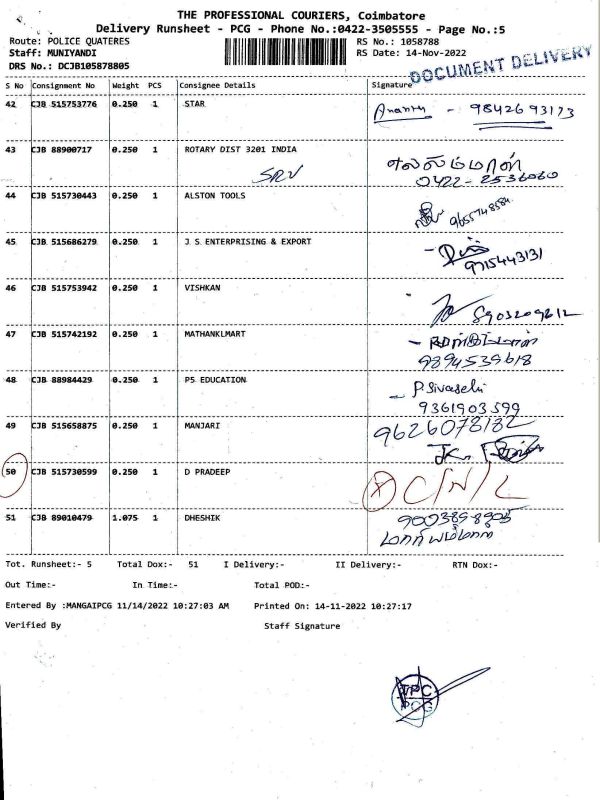 THE PROFESSIONAL COURIERS, Coimbatore
Delivery Runsheet - PCG - Phone No.:0422-3505555 - Page No.:5
Route: POLICE QUATERES
RS No.: 1058788
Staff: MUNIYANDI
RS Date: 14-Nov-2022
DRS No.: DCJB105878805
DOCUMENT DELIVERY
S No Consignment No Weight PCS Consignee Details Signature
42 CJB 515753776 0.250 1 STAR
- 9842693173
43 CJB 88900717 0.250 1 ROTARY DIST 3201 INDIA
SRV
0422- 2536060
44 CJB 515730443 0.250 1 ALSTON TOOLS
9655748584
45 CJB 515686279 0.250 1 J S ENTERPRISING & EXPORT
9715443131
46 CJB 515753942 0.250 1 VISHKAN
8903209612
47 CJB 515742192 0.250 1 MATHANKLMART
9894539618
48 CJB 88984429 0.250 1 PS EDUCATION
9361903599
49 CJB 515658875 0.250 1 MANJARI
9626078182
50 CJB 515730599 0.250 1 D PRADEEP
X C/N/L
51 CJB 89010479 1.075 1 DHESHIK
9003898905
Tot. Runsheet:- 5 Total Dox:- 51 I Delivery:- II Delivery:- RTN Dox:-
Out Time:- In Time:- Total POD:-
Entered By :MANGAIPCG 11/14/2022 10:27:03 AM Printed On: 14-11-2022 10:27:17
Verified By Staff Signature
TPC
PCG